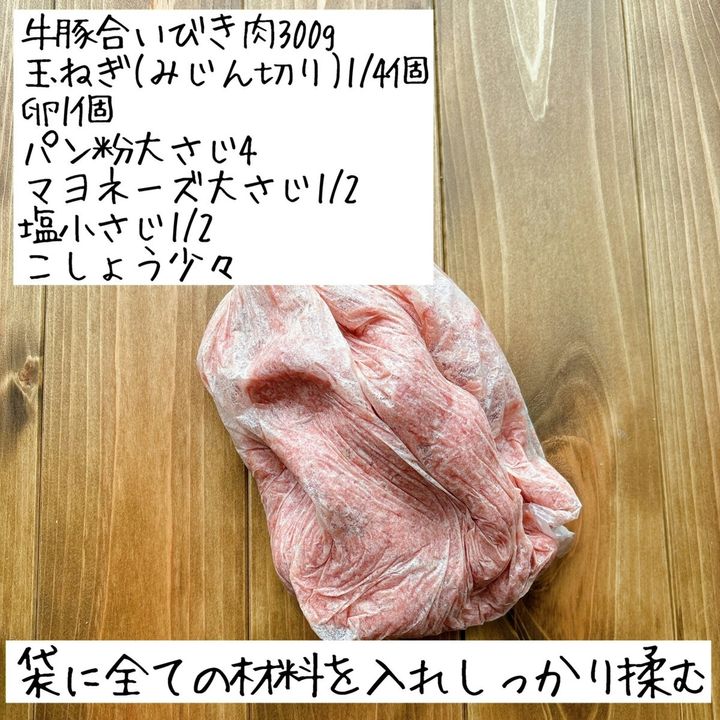 牛豚合いびき肉300g
玉ねぎ(みじん切り)1/4個
卵1個
パン粉大さじ4
マヨネーズ大さじ1/2
塩小さじ1/2
こしょう少々
袋に全ての材料を入れしっかり揉む